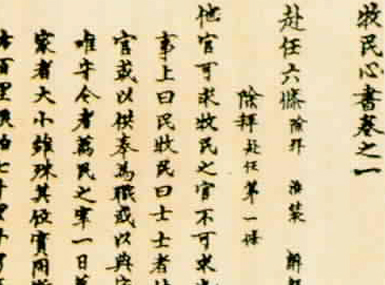 牧民心書卷之一
赴任六條 除拜 治裝 辭朝
除拜 赴任第一條
他官可求牧民之官不可求也
事上曰民牧民曰士士者仕
官或以供奉為職或以典守
唯守令者萬民之宰一日萬
家者大小雖殊其位實同斯
百里